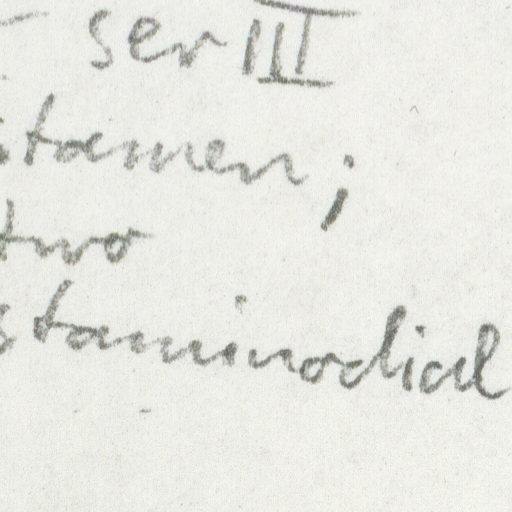 - ser III
stamen;
two
staminodial